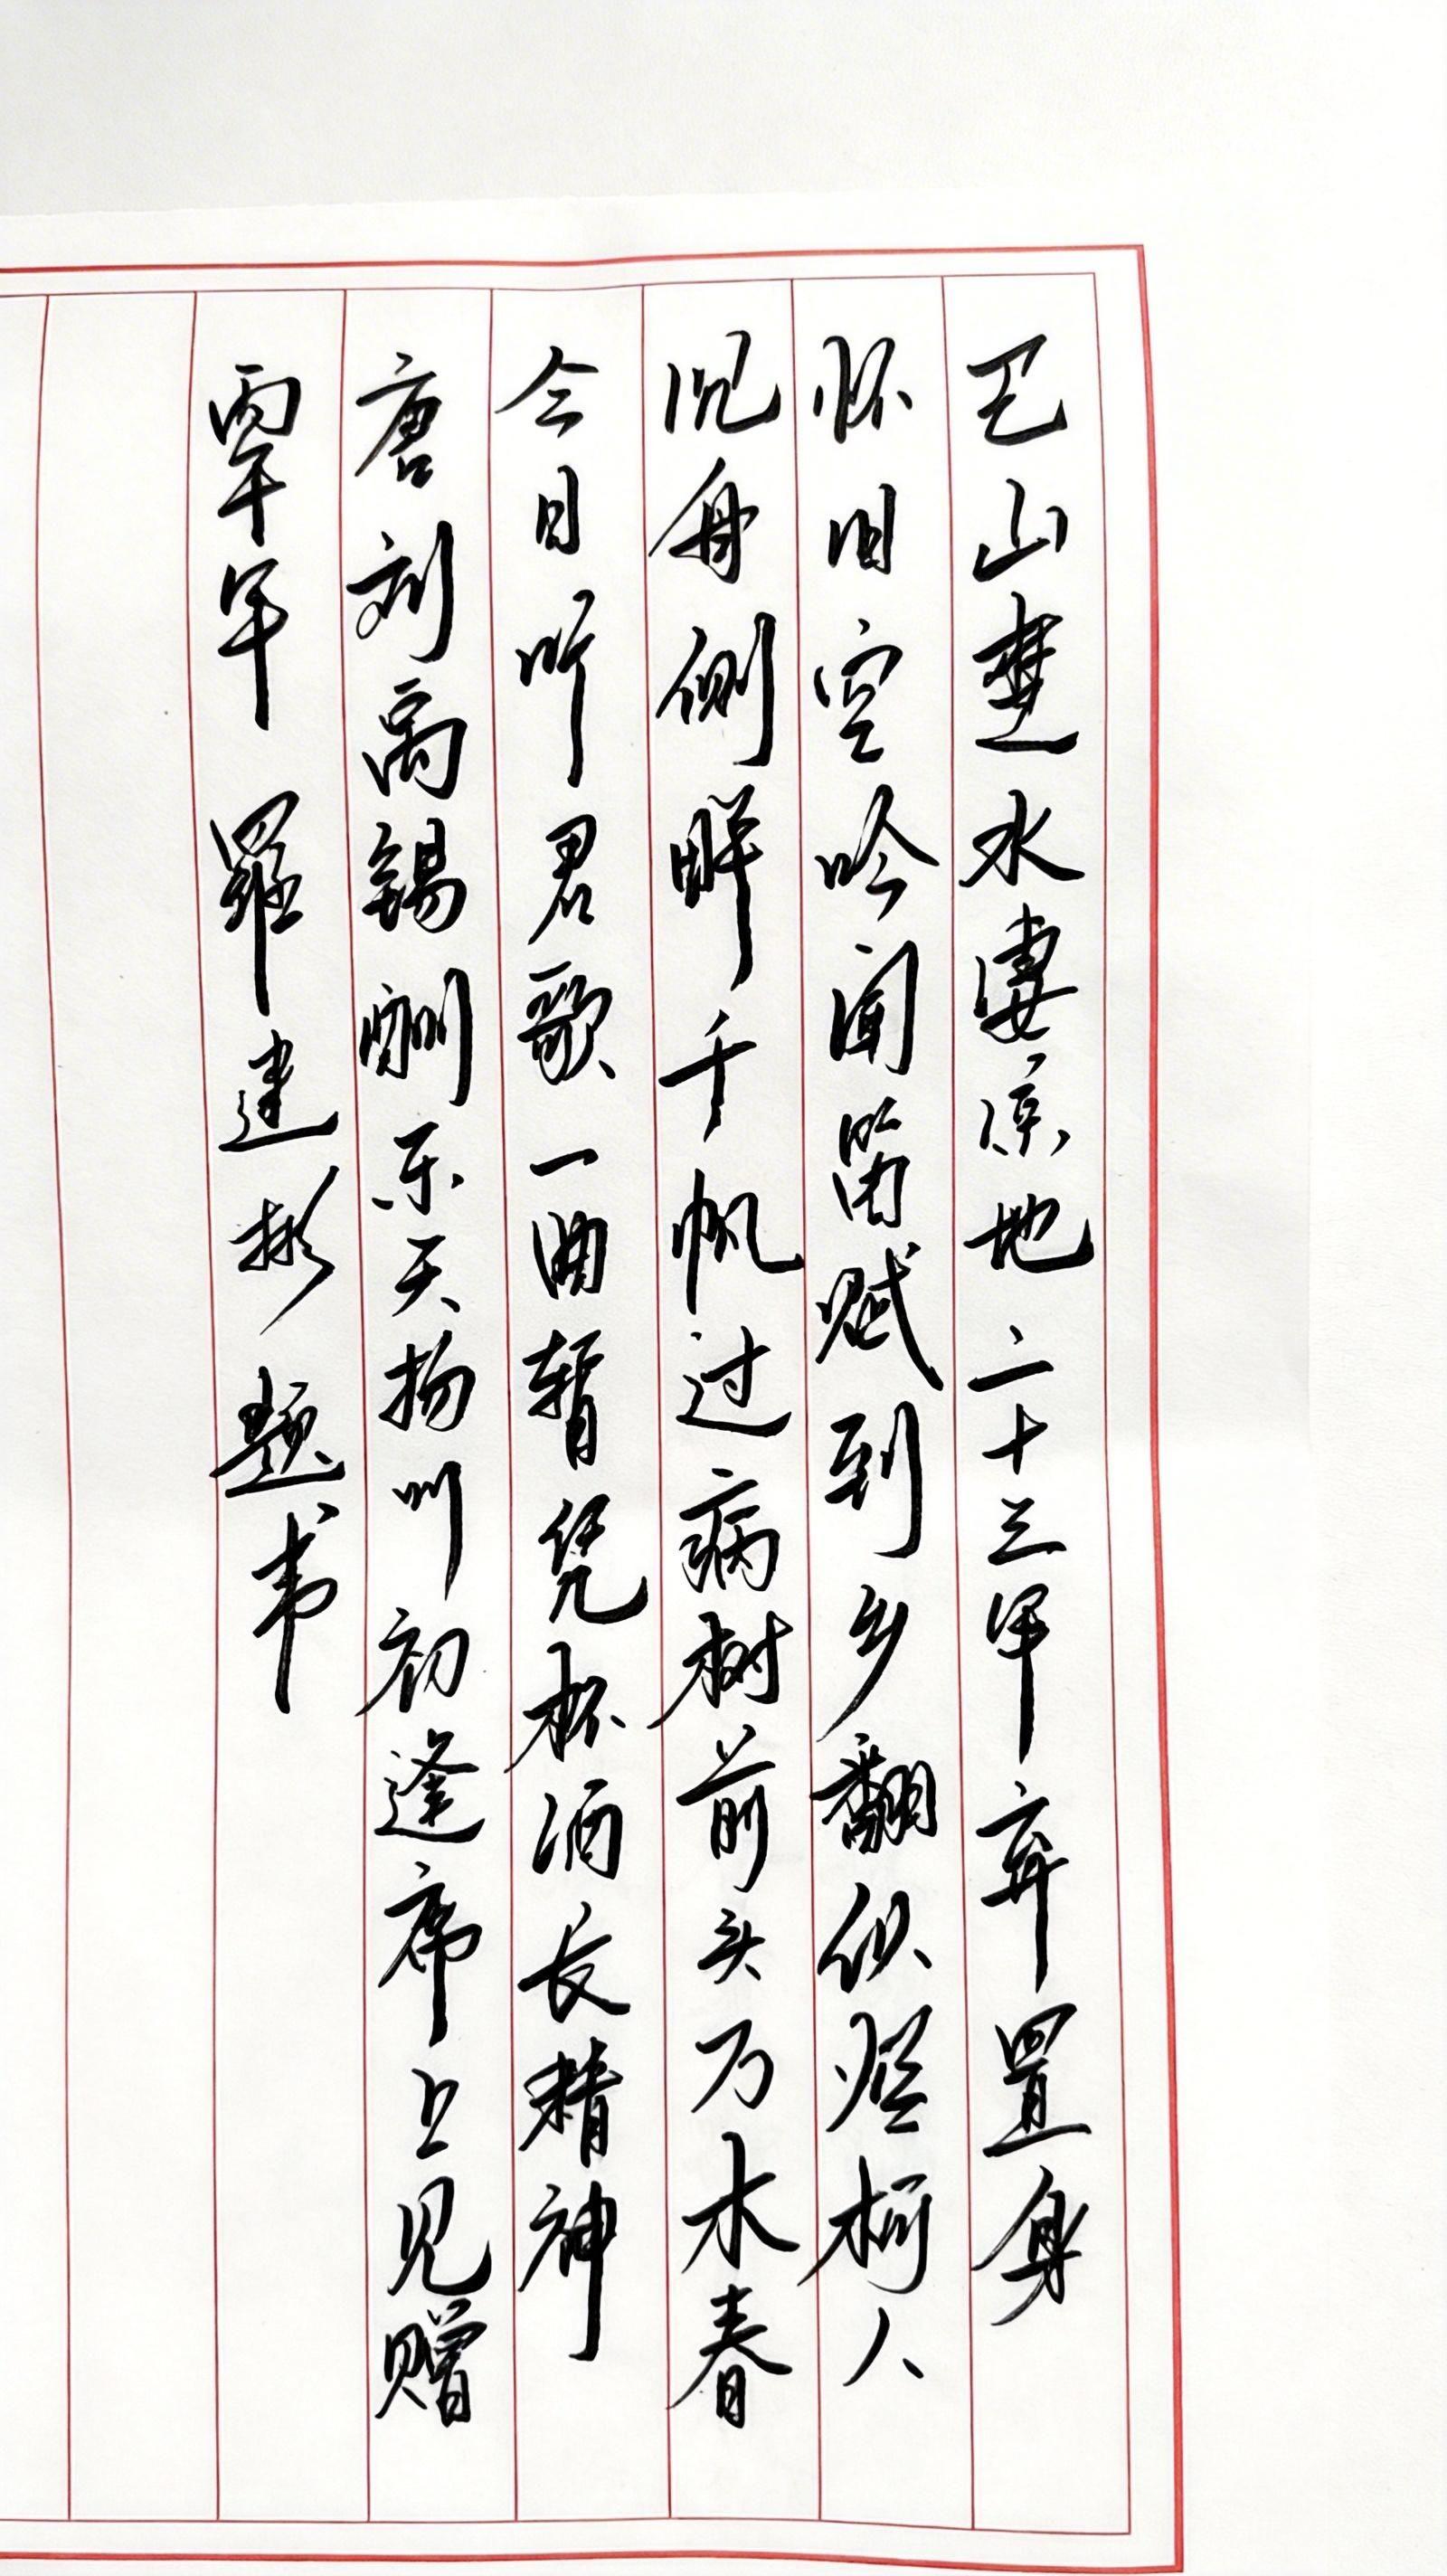 巴山楚水凄凉地二十三年弃置身
怀旧空吟闻笛赋到乡翻似烂柯人
沉舟侧畔千帆过病树前头万木春
今日听君歌一曲暂凭杯酒长精神
唐刘禹锡酬乐天扬州初逢席上见赠
丙午年 羅建彬 题书